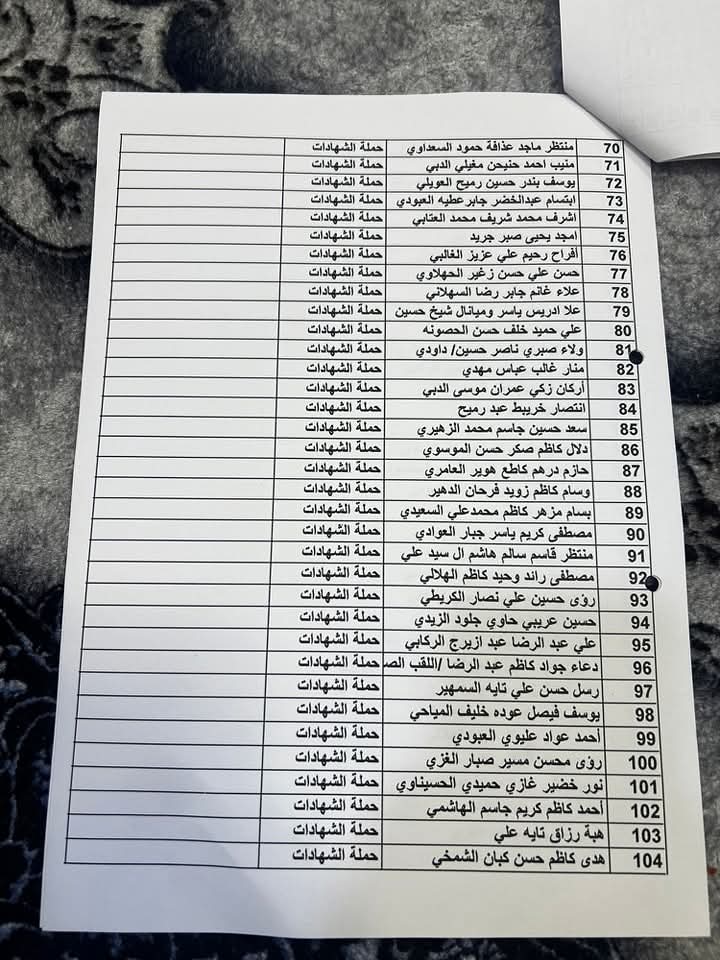 70 منتظر ماجد عذافة حمود السعداوي حملة الشهادات
71 منيب احمد حنيحن مغيلي الدبي حملة الشهادات
72 يوسف بندر حسين رميح العويلي حملة الشهادات
73 ابتسام عبدالخضر جابرعطيه العبودي حملة الشهادات
74 اشرف محمد شريف محمد العتابي حملة الشهادات
75 امجد يحيى صبر جريد حملة الشهادات
76 أفراح رحيم علي عزيز الغالبي حملة الشهادات
77 حسن علي حسن زغير الحهلاوي حملة الشهادات
78 علاء غانم جابر رضا السهلاني حملة الشهادات
79 علا ادريس ياسر وميانال شيخ حسين حملة الشهادات
80 علي حميد خلف حسن الحصونه حملة الشهادات
81 ولاء صبري ناصر حسين/ داودي حملة الشهادات
82 منار غالب عباس مهدي حملة الشهادات
83 أركان زكي عمران موسى الدبي حملة الشهادات
84 انتصار خريبط عبد رميح حملة الشهادات
85 سعد حسين جاسم محمد الزهيري حملة الشهادات
86 دلال كاظم صكر حسن الموسوي حملة الشهادات
87 حازم درهم كاطع هوير العامري حملة الشهادات
88 وسام كاظم زويد فرحان الدهير حملة الشهادات
89 بسام مزهر كاظم محمدعلي السعيدي حملة الشهادات
90 مصطفى كريم ياسر جبار العوادي حملة الشهادات
91 منتظر قاسم سالم هاشم ال سيد علي حملة الشهادات
92 مصطفى رائد وحيد كاظم الهلالي حملة الشهادات
93 رؤى حسين علي نصار الكريطي حملة الشهادات
94 حسين عريبي حاوي جلود الزيدي حملة الشهادات
95 علي عبد الرضا عبد ازيرج الركابي حملة الشهادات
96 دعاء جواد كاظم عبد الرضا /اللقب الص حملة الشهادات
97 رسل حسن علي تايه السمهير حملة الشهادات
98 يوسف فيصل عوده خليف المياحي حملة الشهادات
99 أحمد عواد عليوي العبودي حملة الشهادات
100 رؤى محسن مسير صبار الغزي حملة الشهادات
101 نور خضير غازي حميدي الحسيناوي حملة الشهادات
102 أحمد كاظم كريم جاسم الهاشمي حملة الشهادات
103 هبة رزاق تايه علي حملة الشهادات
104 هدى كاظم حسن كبان الشمخي حملة الشهادات